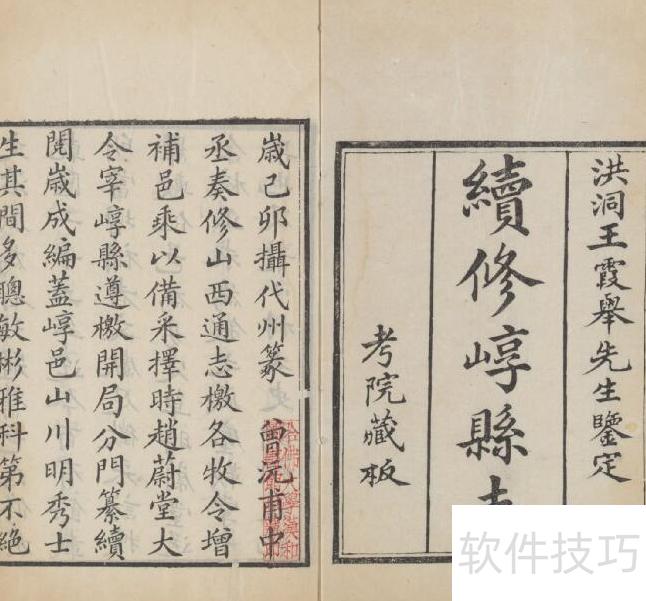 洪洞王霞舉先生鑒定
續修崞縣
考院藏板
歲己卯攝代州篆 曾沅甫中
丞奏修山西通志檄各牧令增
補邑乘以備采擇時趙蔚堂大
令宰崞縣遵檄開局分門纂續
閱歲成編蓋崞邑山川明秀士
生其間多聰敏彬雅科第不絕
哈佛大學漢和
软件技巧